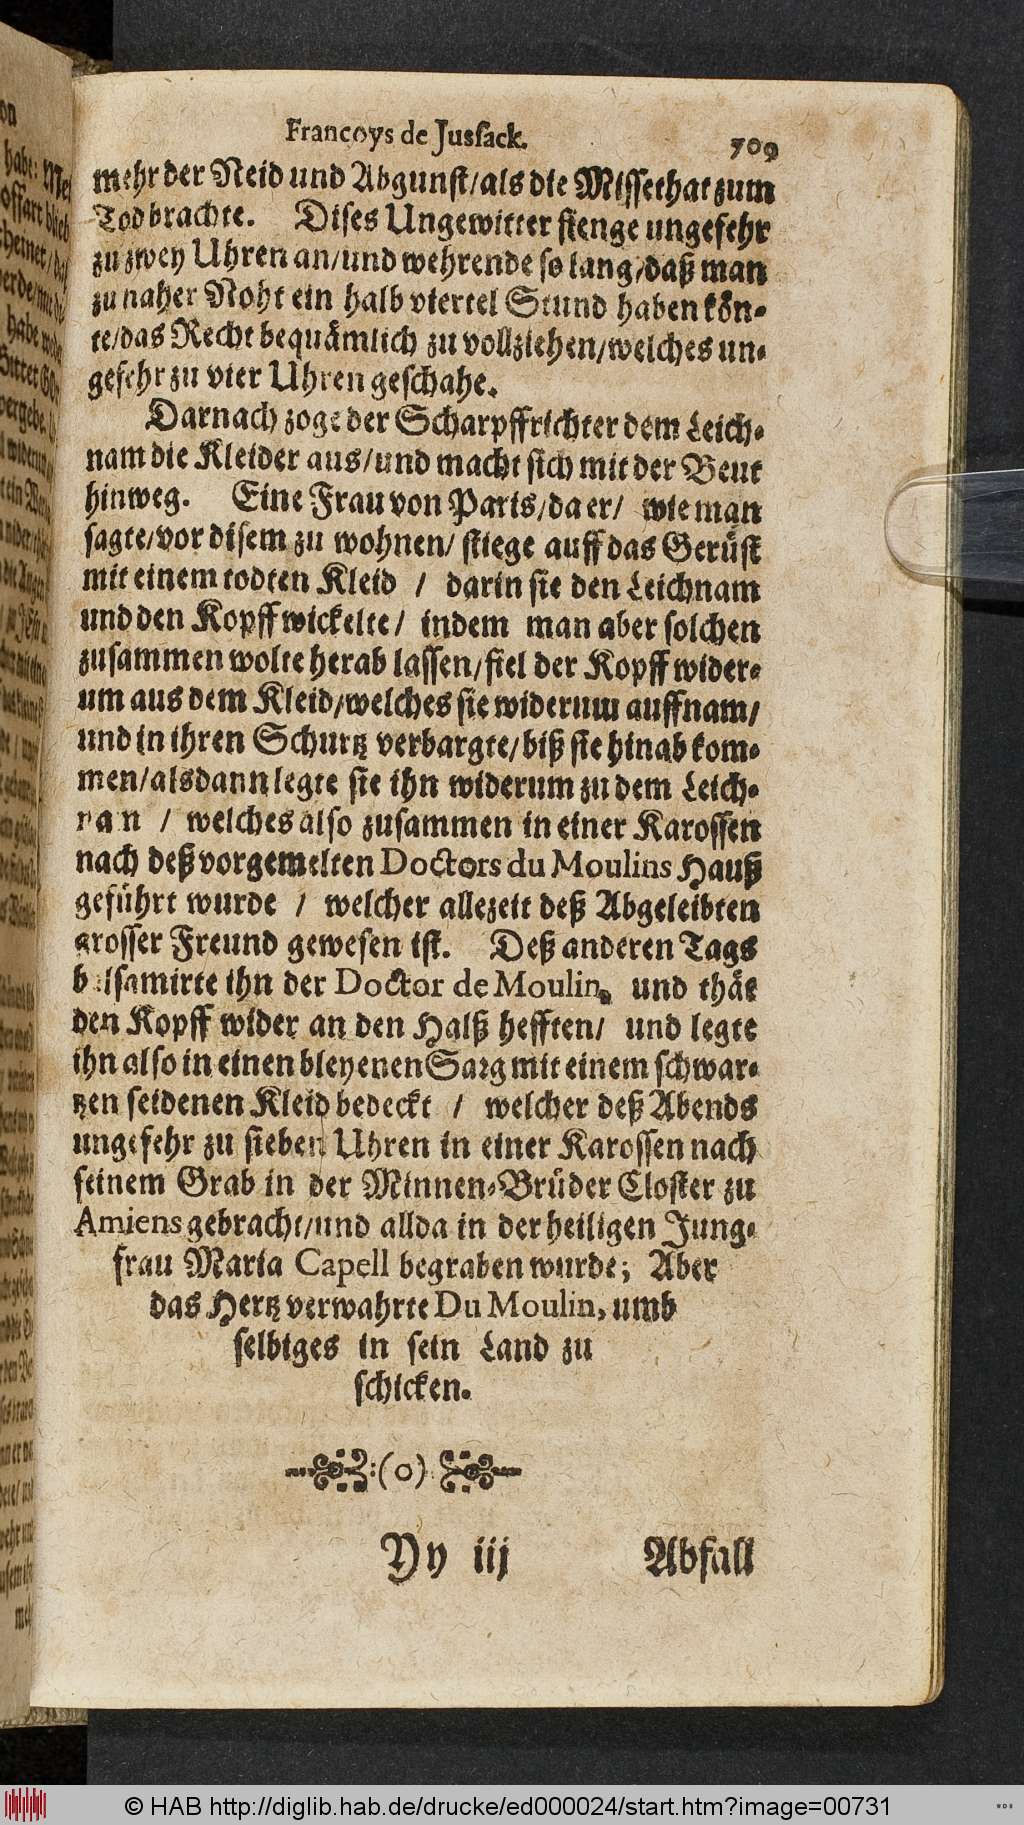 Françoys de Jussack. 709
mehr der Neid und Abgunst/als die Missethat zum
Tod brachte. Dises Ungewitter fienge ungefehr
zu zwey Uhren an/und wehrende so lang/daß man
zu naher Noht ein halb viertel Stund haben kön-
te/das Recht bequämlich zu vollziehen/welches un-
gefehr zu vier Uhren geschahe.
Darnach zoge der Scharpffrichter dem Leich-
nam die Kleider aus/und macht sich mit der Beut
hinweg. Eine Frau von Paris/da er/ wie man
sagte/vor disem zu wohnen/ stiege auff das Gerüst
mit einem todten Kleid / darin sie den Leichnam
und den Kopff wickelte/ indem man aber solchen
zusammen wolte herab lassen/fiel der Kopff wider-
um aus dem Kleid/welches sie widerum auffnam/
und in ihren Schurtz verbargte/biß sie hinab kom-
men/alsdann legte sie ihn widerum zu dem Leich-
nan / welches also zusammen in einer Karossen
nach deß vorgemelten Doctors du Moulins Hauß
geführt wurde / welcher allezeit deß Abgeleibten
grosser Freund gewesen ist. Deß anderen Tags
balsamirte ihn der Doctor de Moulin, und thät
den Kopff wider an den Halß hefften/ und legte
ihn also in einen bleyenen Sarg mit einem schwar-
tzen seidenen Kleid bedeckt / welcher deß Abends
ungefehr zu sieben Uhren in einer Karossen nach
seinem Grab in der Minnen-Brüder Closter zu
Amiens gebracht/und allda in der heiligen Jung-
frau Maria Capell begraben wurde; Aber
das Hertz verwahrte Du Moulin, umb
selbiges in sein Land zu
schicken.
:(o):
Yy iij Abfall
© HAB http://diglib.hab.de/drucke/ed000024/start.htm?image=00731